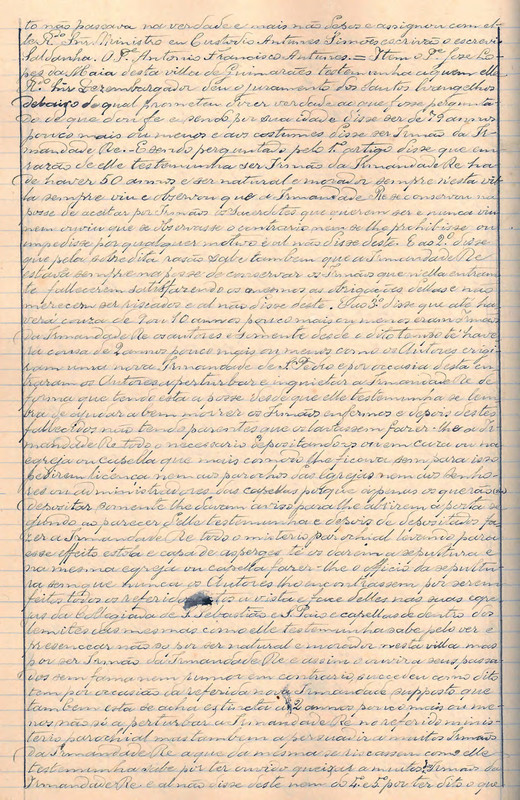 to não passava na verdade e mais não disse e assignou com el-
le Rdo Snr Ministro eu Custodio Antunes Simões escrivão o escrevi
Saldanha. O Pe Antonio Francisco Antunes. = Item o Pe José Lo-
pes da Maia desta villa de Guimarães testemunha a quem elle
Rdo Snr Dezembargador deu o juramento dos Santos Evangelhos
debaixo do qual prometeu dizer verdade ao que fosse pergunta-
do de que dou fe e sendo por sua idade disse ser de 79 annos
pouco mais ou menos e aos costumes disse ser Irmão da Ir-
mandade Re. E sendo perguntado pelo 1º artigo disse que em
razão de elle testemunha ser Irmão da Irmandade Re ha
de haver 50 annos e ser natural e morador sempre nesta vil-
la sempre viu e observou que a Irmandade Re se conservou na
posse de aceitar por Irmãos os Sacerdotes que queriam ser e nunca viu
nem ouviu que se observasse o contrario nem se lhe prohibisse ou
impedisse por qualquer motivo e al não disse deste. E ao 2º disse
que pela sobredita rasão sabe tambem que a Irmandade Re
esteve sempre na posse de conservar os Irmãos que nella entram
te fallecerem satisfazendo os mesmos as obrigações della e não
merecem ser riscados e al não disse deste. Ao 3º disse que até ha-
verá couza de 9 ou 10 annos pouco mais ou menos eram Irmãos
da Irmandade Re os autores e somente desde o dito tempo té have-
rá cousa de 2 annos pouco mais ou menos como os Autores erigi-
ram uma nova Irmandade de S. Pedro e por occasião desta en-
traram os Autores a perturbar e inquietar a Irmandade Re de
forma que tendo esta a posse desde que elle testemunha se lem-
bra de ajudar a bem morrer os Irmãos enfermos e depois destes
fallecidos não tendo parentes que os levassem fazer-lhe a Ir-
mandade Re todo o necessario depositando-os ou em caza ou na
egreja ou capella que mais commodo lhe ficava sem para isso
pedirem licença nem aos parochos das igrejas nem aos senho-
res ou administradores das capellas porque apenas os queriam
depositar somente lhe davam aviso para lhe abrirem a porta se-
gundo ao parecer d'elle testemunha e depois de depositados fa-
zer a Irmandade Re todo o misterio parochial levando para
esse effeito estola e capa de asperges té os darem a sepultura e
na mesma egreja ou capella fazer-lhe o officio da sepultu-
ra sem que nunca os Autores lho encontrassem por serem
feitos todos os referidos actos á vista e face delles nas suas egre-
jas da Collegiada de S. Sebastião e S. Paio e capellas de dentro dos
lemites das mesmas como elle testemunha sabe pelo ver e
presenciar não só por ser natural e morador nesta villa mas
por ser Irmão da Irmandade Re e assim o ouvira a seus passa-
dos sem fama nem rumor em contrario, succedeu como dito
tem por occasião da referida nova Irmandade supposto que
tambem esta se acha extincta á 2 annos pouco mais ou me-
nos não só a perturbar a Irmandade Re no referido minis-
terio parochial mas tambem a persuadir a muitos Irmãos
da Irmandade Re a que da mesma se riscassem como elle
testemunha sabe por ter ouvido queixar a muitos Irmãos da
Irmandade Re e al não disse deste nem do 4º e 5º por ter dito o que